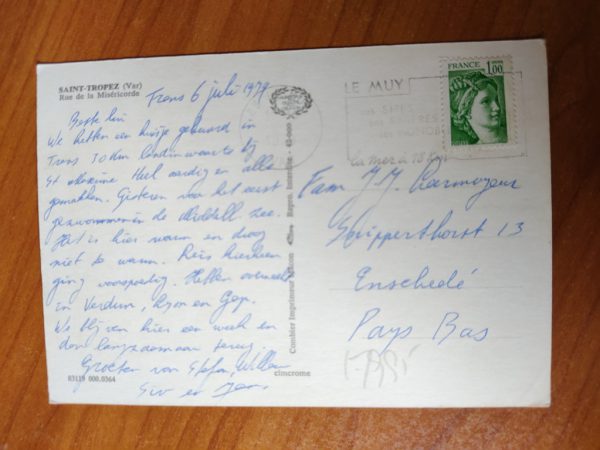 SAINT-TROPEZ (Var)
Rue de la Miséricorde
Trans 6 juli 1979
Beste
We hebben een huisje gehuurd in
Trans 30 km landinwaarts bij
St Maxime Heel aardig en alles
gemakken. Gisteren voor het eerst
gezwommen in de Middell zee.
Het is hier warm en droog
niet te warm. Reis hierheen
ging voorspoedig. Hebben overnacht
in Verdun, Lyon en Gap.
We blijven hier een week en
dan langzaam aan terug.
Groeten van Stefan, Willem
Siv en
83119 000.0364
cimcrome
Combier Imprimeur Mâcon
LE MUY
ses SITES
la mer à 15 km
FRANCE 1,00
Fam J.J.
13
Enschedé
Pays Bas